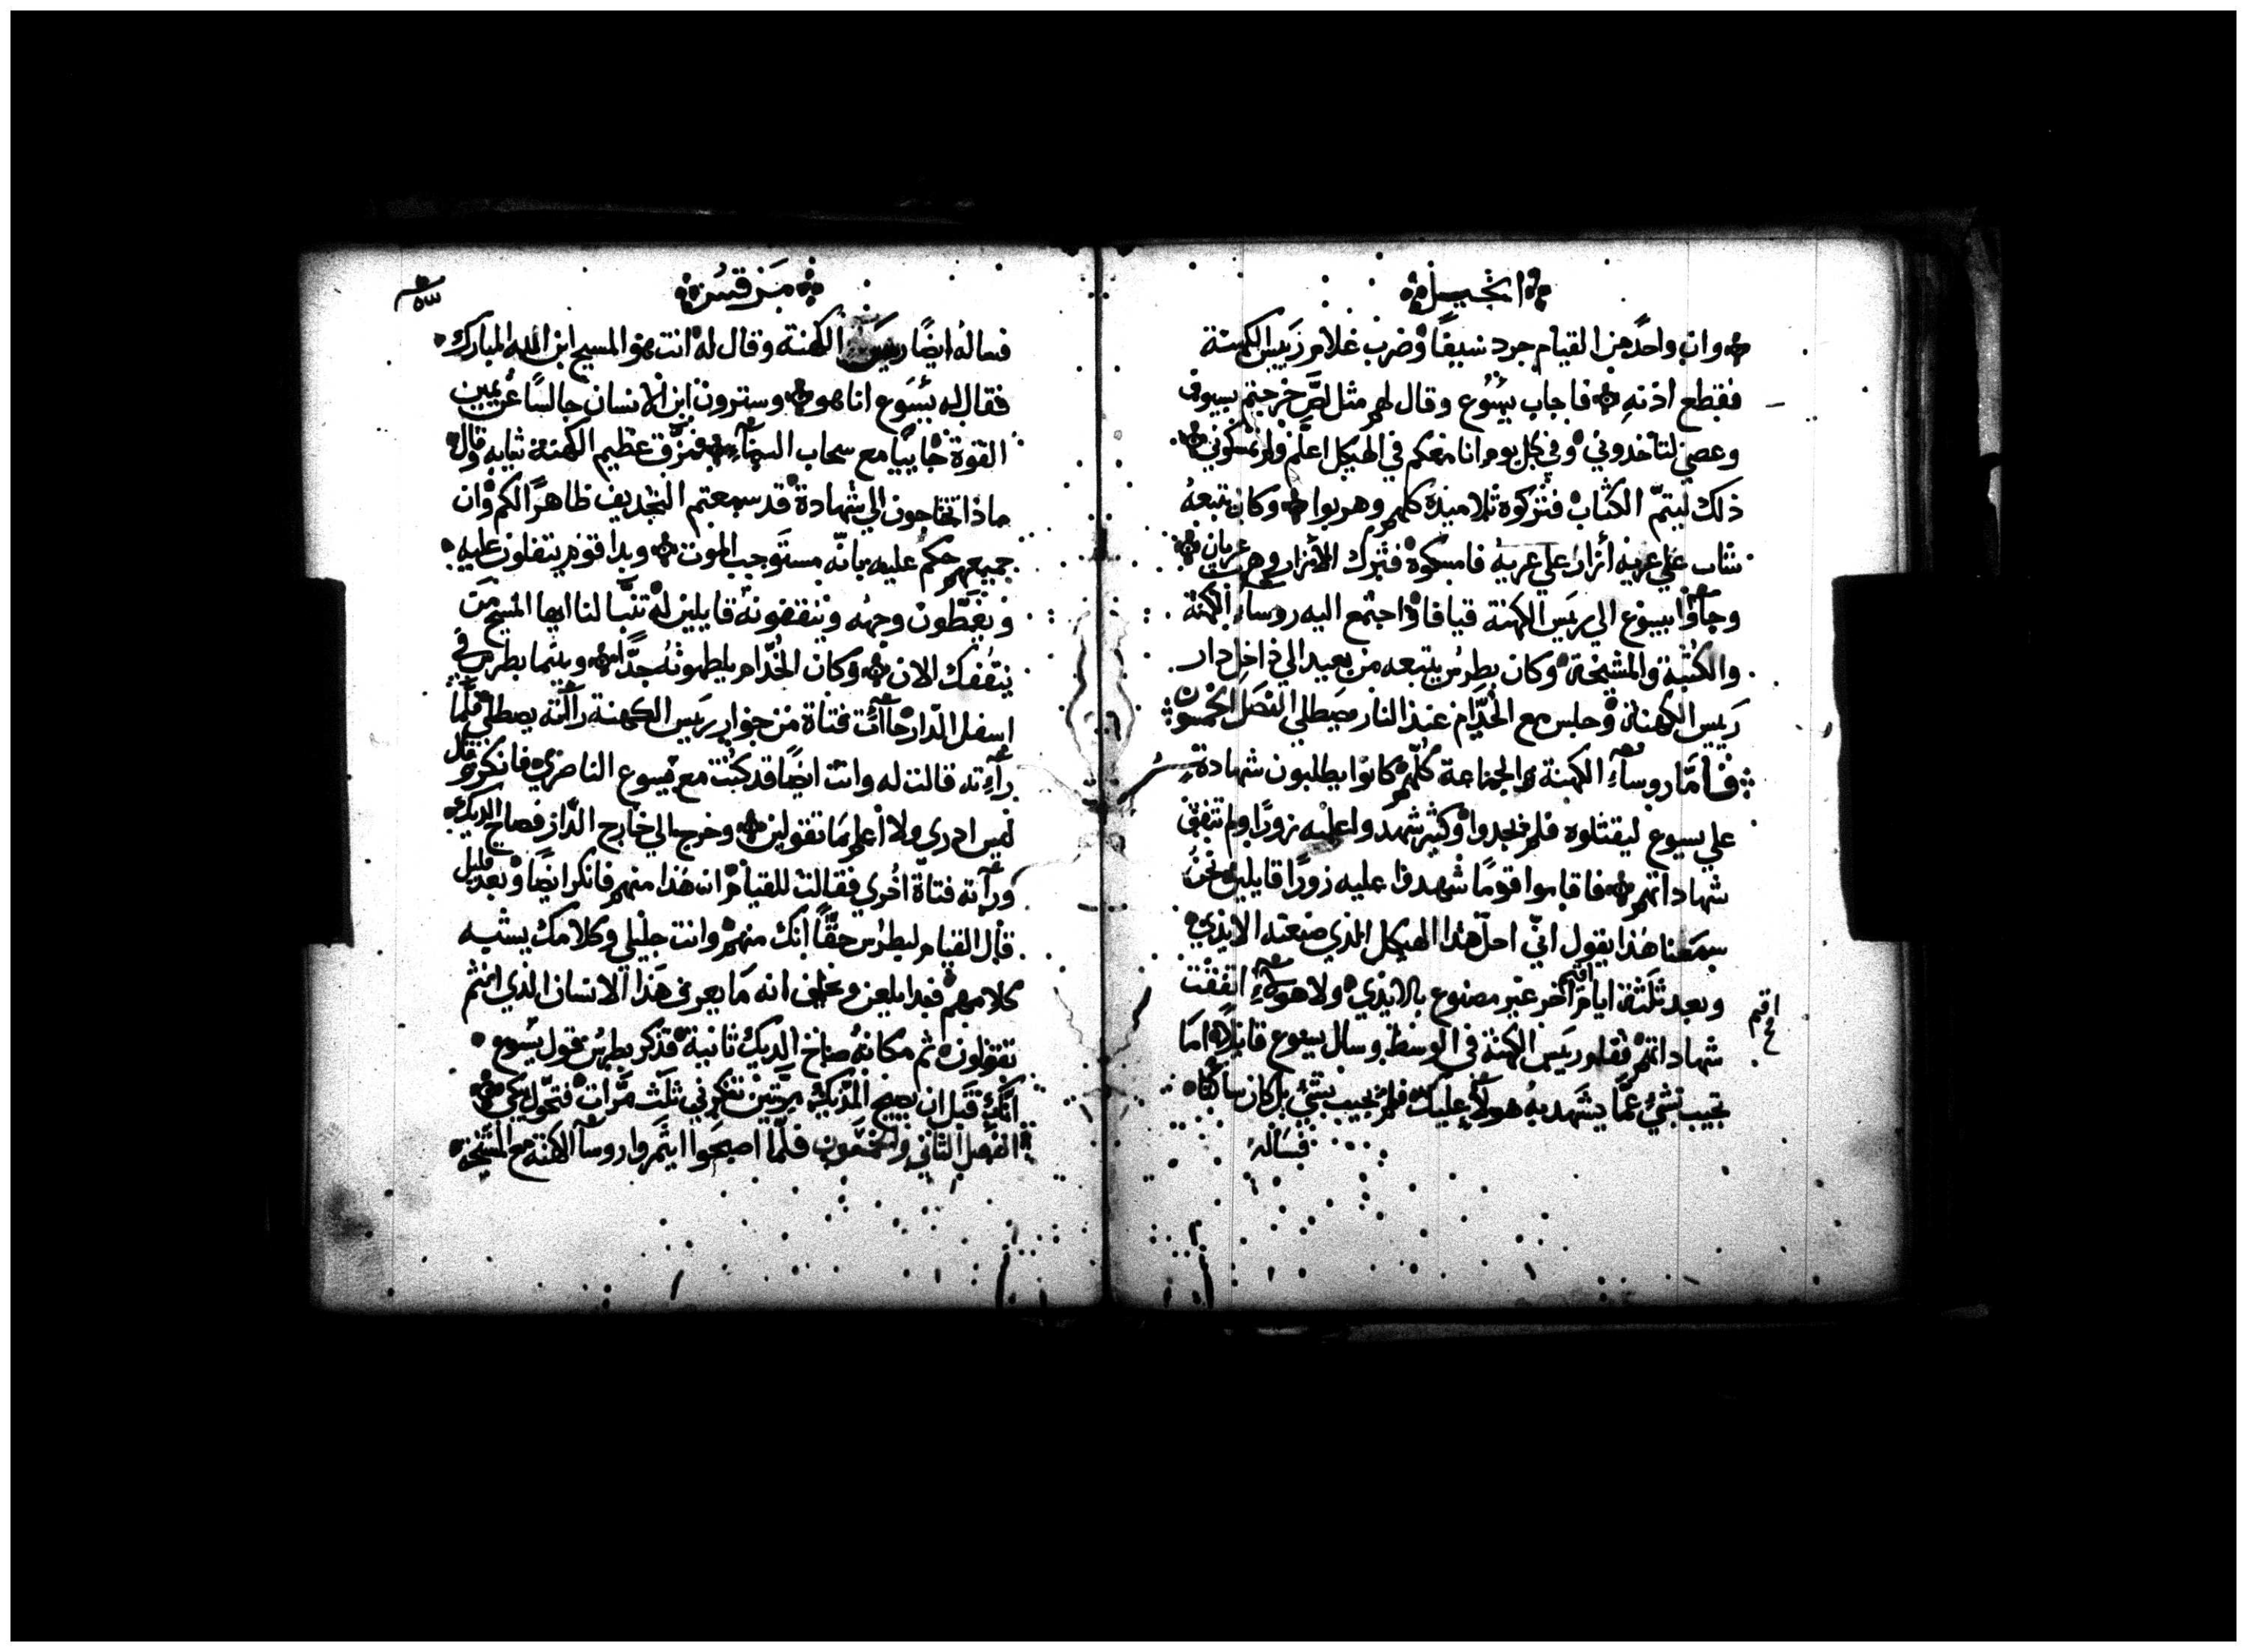 انجيل
وان واحدًا من القيام جرد سيفًا وضرب غلام رييس الكهنة
فقطع اذنهِ فاجاب يسُوع وقال لهم مثل لصٍّ خرجتم بسيوف
وعصي لتأخدوني وفي كل يوم انا معكم في الهيكل اعلّم ولم تمسكوني
ذلك ليتمّ الكتاب فتركوه تلاميذه كلهم وهربوا وكان يتبعهُ
شاب علي عريه أزار علي عريه فامسكوه فترك الأزار وهرب عريان
وجآوٓا بيسوع الي رييس الكهنة قيافا واجتمع اليه روسآء الكهنة
والكتبة والمشيخة وكان بطرس يتبعه من بعيد الي داخل دار
رييس الكهنة وجلس مع الخدّام عند النار يصطلي الفصل الخمسون
فأمّا روسآء الكهنة والجماعة كلّهم كانوا يطلبون شهادةٍ
علي يسوع ليقتلوه فلم يجدوا وكثير شهدوا عليه زورًا ولم تتفق
شهاداتهم فاقاموا قومًا شهدوا عليه زورًا قايلين نحنُ
سمعنا هذا يقول انّي احلّ هذا الهيكل الذي صنعته الايدي
وبعد ثلثة ايام اقيم آخر غير مصنوع بالايدي ولا هولآءِ اتفقت
اقيم ع
شهاداتهم فقام رييس الكهنة في الوسط وسال يسوع قايلًا اما
تجيب بشيء عمّا يشهد به هولآءِ عليك فلم يجيب بشيء بل كان ساكتًا
فساله
مرقس
فساله ايضًا رييس الكهنة وقال له انت هو المسيح ابن الله المبارك
فقال له يسُوع انا هو وسترون ابن الانسان جالسًا عن يمين
القوة جاييا مع سحاب السمآء فمزّق عظيم الكهنة ثيابه وقال
ماذا تحتاجون الي شهادة قد سمعتم التجديف ظاهرًا لكم وان
جميعهم حكم عليه بانّه مستوجب الموت وبدا قوم يتفلون عليه
ويغطّون وجهه وينقفونهُ قايلين له تنبّا لنا ايها المسيح من
ينقُفك الان وكان الخُدّام يلطمونهُ جدًّا وبينما بطرس في
اسفل الدّار جآءت فتاة من جوار رييس الكهنة رآته يصطلي فلمّا
رآءته قالت له وانت ايضًا قد كنت مع يسوع الناصري فانكر وقال
ليس ادري ولا اعلم ما تقولين وخرج الي خارج الدّار فصاح الديك
ورآته فتاة اخري فقالت للقيام ان هذا منهم فانكر ايضًا وبعد قليل
قال القيام لبطرس حقًّا انك منهم وانت جليلي وكلامك يشبه
كلامهم فبدا يلعن ويحلف انه ما يعرف هذا الانسان الذي انتم
تقولون ثم مكانهُ صاح الديك ثانية فذكر بطرس بقول يسُوع
انّك قبل ان يصيح الديك مرّتين تنكرني ثلث مرّات فتحوّل يبكي
الفصل الثاني والخمسون فلمّا اصبحوا ايتمروا روسآ الكهنة مع المشيخة